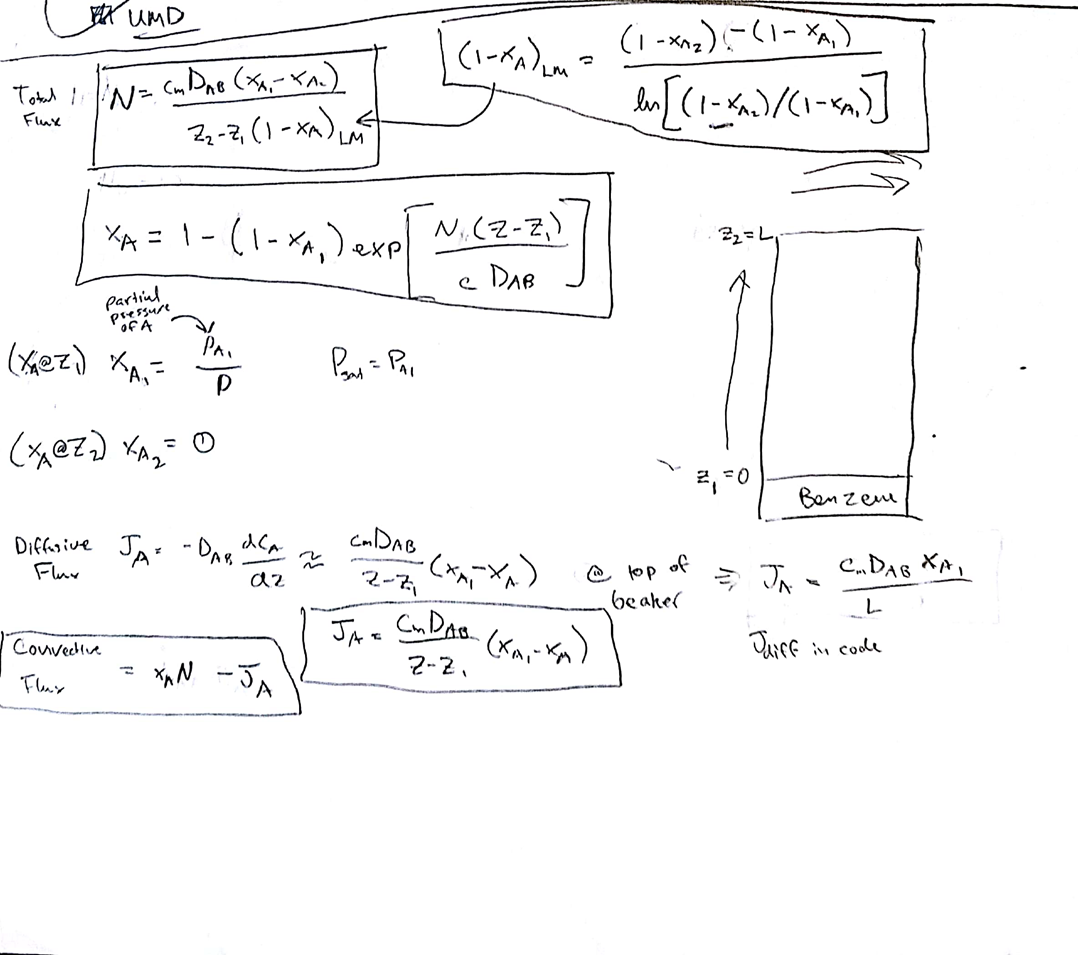 UMD
Total Flux N = cₘD_AB (x_A₁ - x_A₂) / z₂ - z₁ (1 - x_A)_LM
(1 - x_A)_LM = (1 - x_A₂) - (1 - x_A₁) / ln[(1 - x_A₂)/(1 - x_A₁)]
x_A = 1 - (1 - x_A₁) exp[N (z - z₁) / c D_AB]
z₂ = L
partial
pressure
of A
(x_A@z₁) x_A₁ = p_A₁ / P
P_sat = P_A₁
(x_A@z₂) x_A₂ = 0
z₁ = 0
Benzene
Diffusive Flux J_A = -D_AB dC_A/dz ≈ cₘD_AB / z - z₁ (x_A₁ - x_A) @ top of beaker ⇒ J_A = CₘD_AB x_A₁ / L
J_A = CₘD_AB / z - z₁ (x_A₁ - x_A)
Jdiff in code
Convective Flux = x_A N - J_A